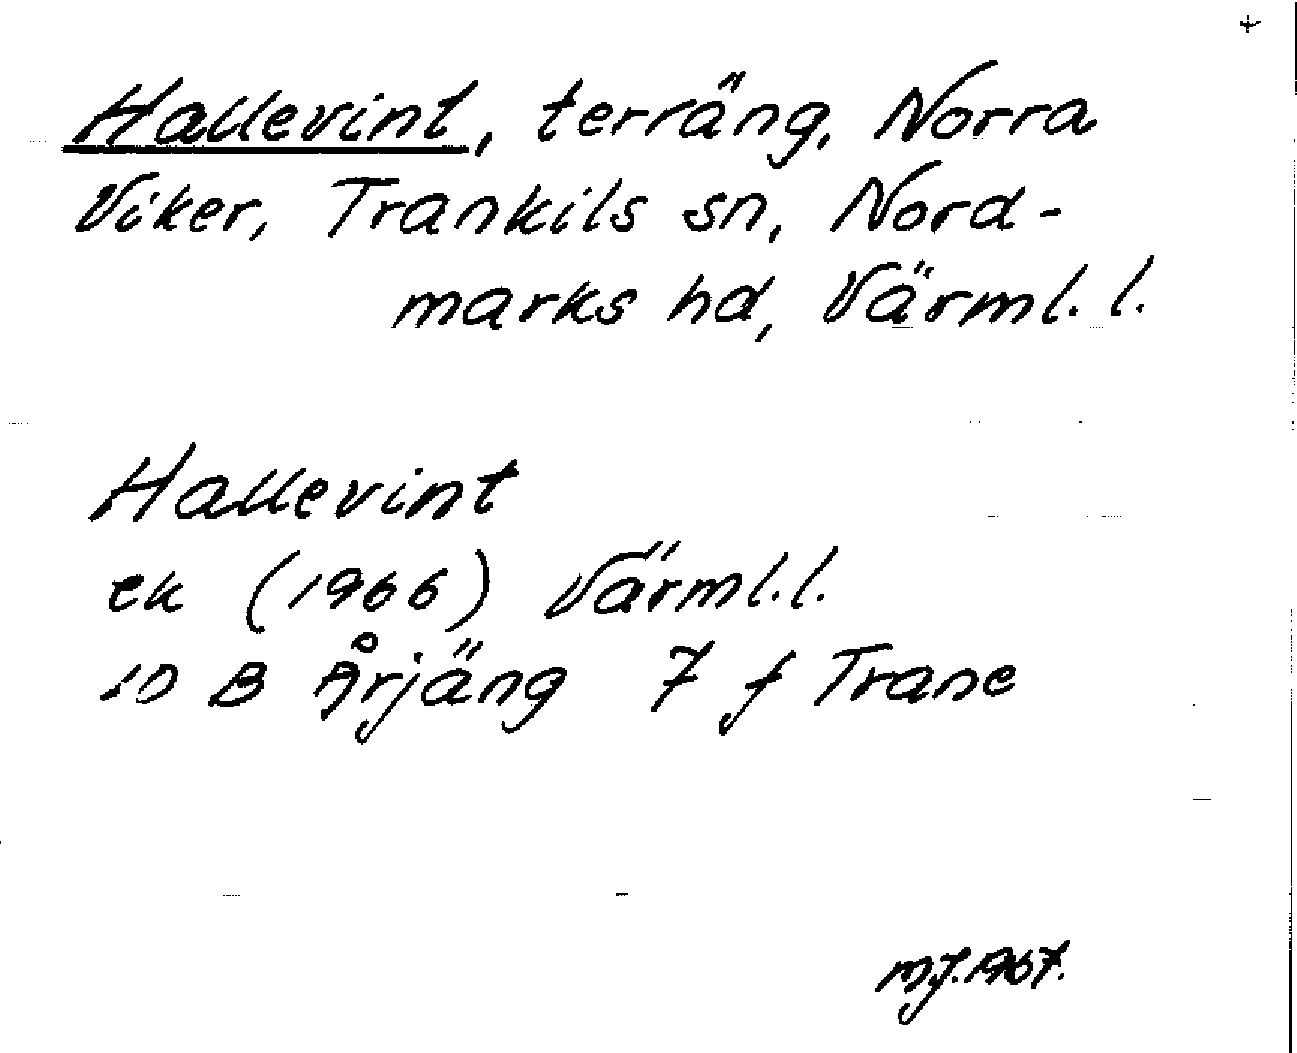 +
Hallevint, terräng, Norra
Viker, Trankils sn, Nord-
marks hd, Värml. l.
Hallevint
ek (1966) Värml. l.
10 B Årjäng 7 f Trane
MJ. 1967.